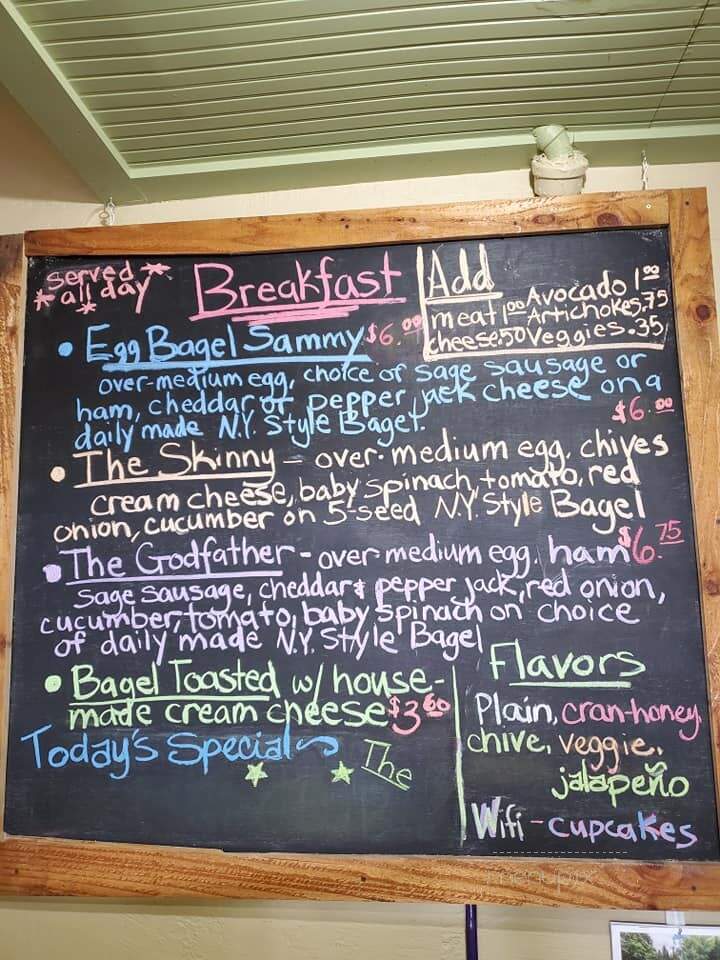 served
all day
Breakfast
Add
meat 1.00 Avocado 1.00
Artichokes.75
cheese.50 Veggies.35
Egg Bagel Sammy $6.00
over-medium egg, choice of sage sausage or
ham, cheddar or pepper jack cheese on a
daily made N.Y. Style Bagel.
$6.00
The Skinny - over-medium egg, chives
cream cheese, baby spinach, tomato, red
onion, cucumber on 5-seed N.Y. Style Bagel
The Godfather - over medium egg, ham $6.75
sage sausage, cheddar & pepper jack, red onion,
cucumber, tomato, baby spinach on choice
of daily made N.Y. Style Bagel
Bagel Toasted w/ house-
made cream cheese $3.60
Today's Special
The
Flavors
Plain, cran-honey,
chive, veggie,
jalapeño
Wifi - cupcakes
menupix